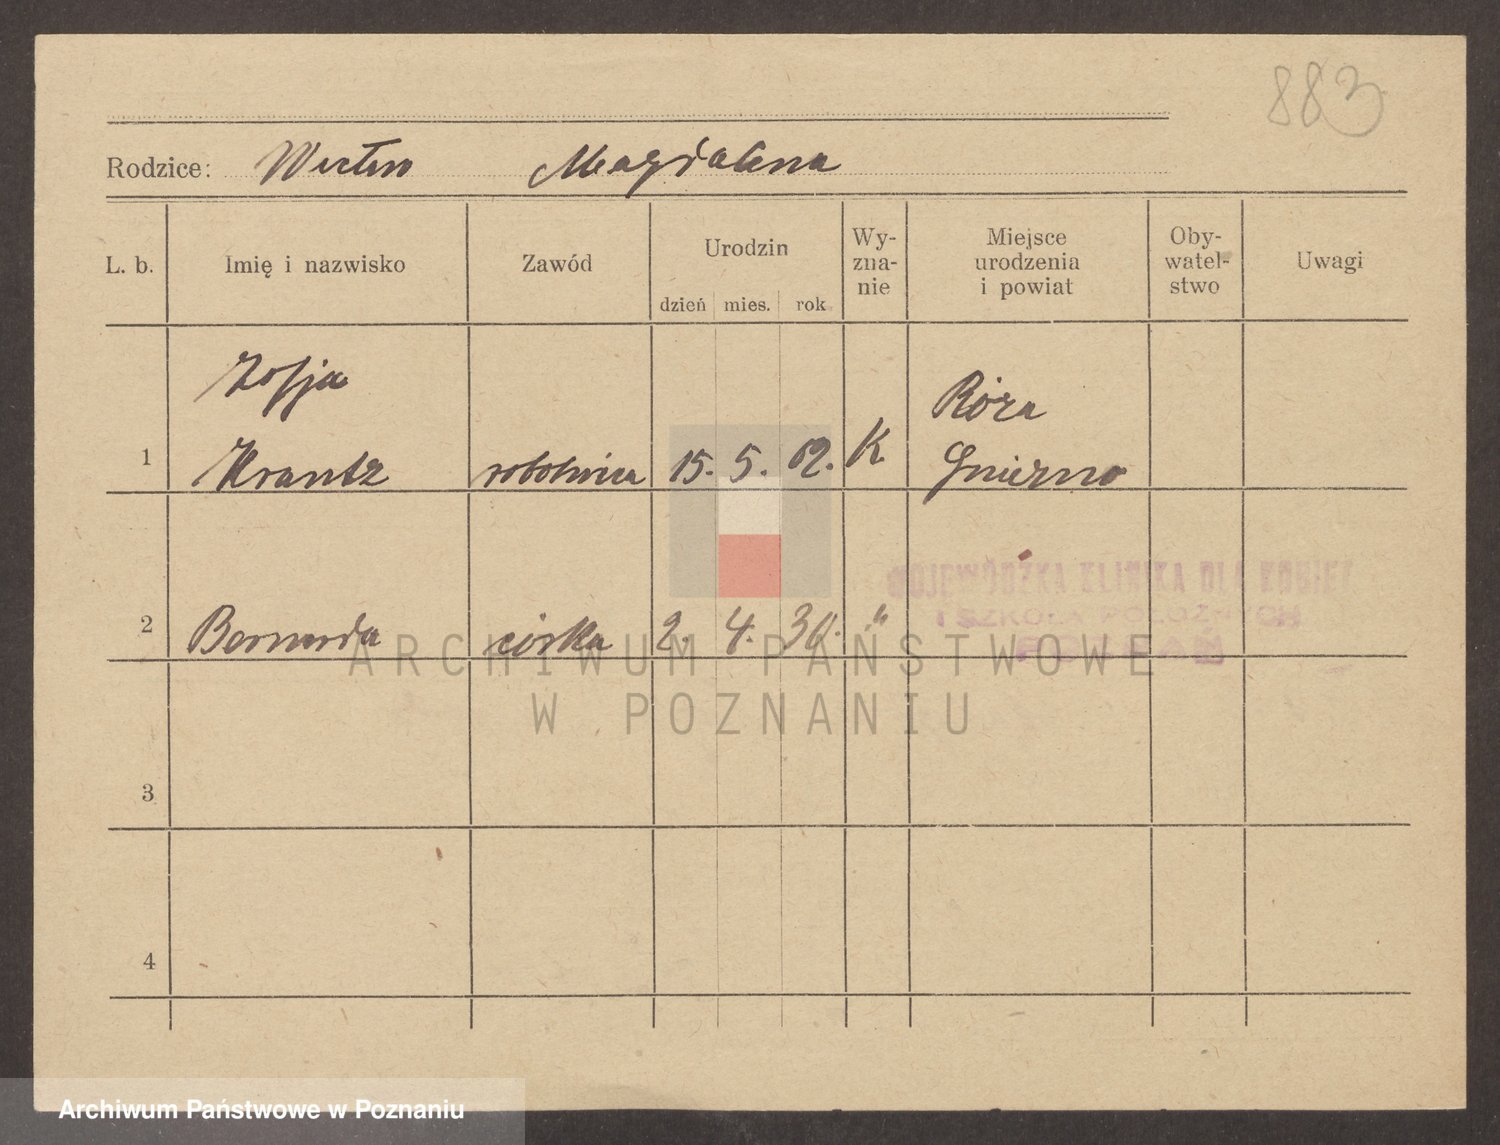 883
Rodzice: Magdalena
L. b. Imię i nazwisko Zawód Urodzin dzień mies. rok Wy-zna-nie Miejsce urodzenia i powiat Oby-watel-stwo Uwagi
Zofja Róża
1 Krantz robotnica 15. 5. 02. K Gniezno
WOJEWÓDZKA KLINIKA DLA KOBIET
I SZKOŁA POŁOŻNYCH
2 Bernarda córka 2. 4. 30. "
ARCHIWUM PAŃSTWOWE
W POZNANIU
3
4
Archiwum Państwowe w Poznaniu